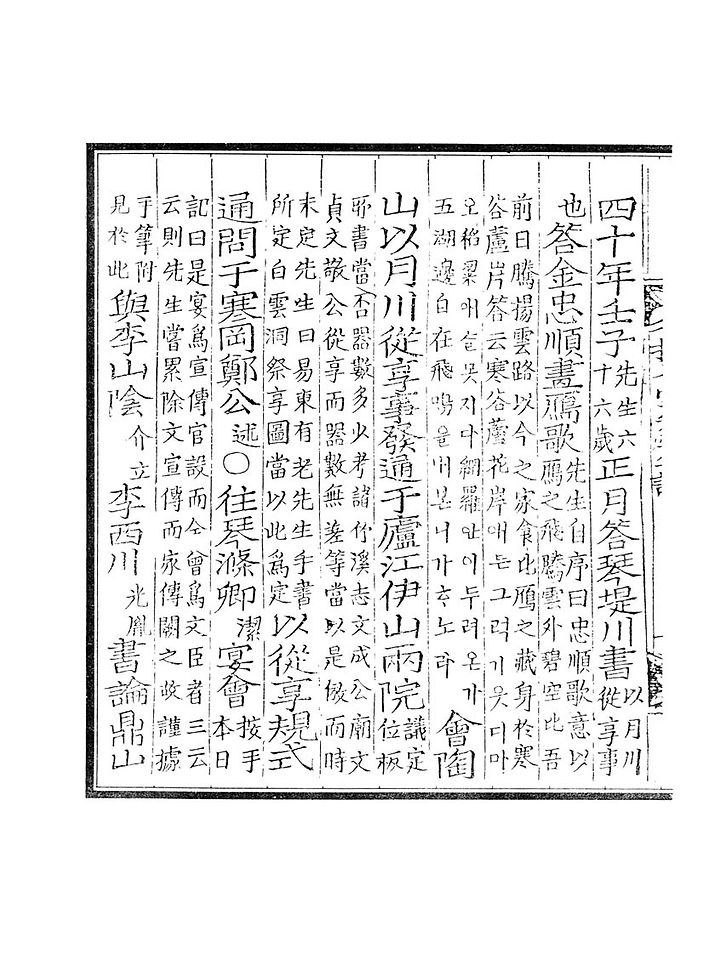 四十年壬子先生六十六歲正月答琴堤川書以月川從享事
也答金忠順畫鴈歌先生自序曰忠順歌意以鴈之飛騰雲外碧空比吾
前日騰揚雲路以今之家食比鴈之藏身於寒
蘆岸答云寒蘆花岸애든그려기웃디마
오稻粱애슬못지다網羅안이두려온가
五湖邊白在飛鳴을내본니가ᄒᆞ노라會陶
山以月川從享事發通于廬江伊山兩院議定位板
書當否器數多少考諸竹溪志文成公廟文
貞文敬公從享而器數無差等當以是倣而時
未定先生曰易東有老先生手書
所定白雲洞祭享圖當以此爲定以從享規式
通問于寒岡鄭公述○往琴滌卿潔宴會按手本日
記曰是宴爲宣傳官設而仝曾爲文臣者三云
云則先生嘗累除文宣傳而家傳闕之故謹據
手筆附見於此與李山陰介立李西川光胤書論鼎山